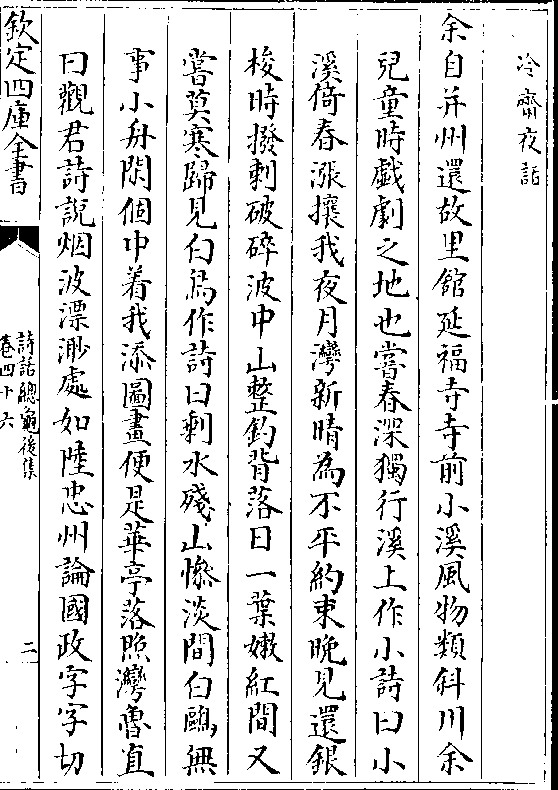 冷齋夜話
余自并州還故里館延福寺寺前小溪風物類斜川余
兒童時戲劇之地也嘗春深獨行溪上作小詩曰小
溪倚春漲攘我夜月灣新晴為不平約束晚見還銀
梭時撥剌破碎波中山整釣背落日一葉嫩紅間又
嘗莫寒歸見白鳥作詩曰剰水殘山慘淡間白鷗無
事小舟閑個中着我添圖畫便是華亭落照灣魯直
曰觀君詩說烟波漂渺處如陸忠州論國政字字切
欽定四庫全書
詩話總龜後集
卷四十六
二